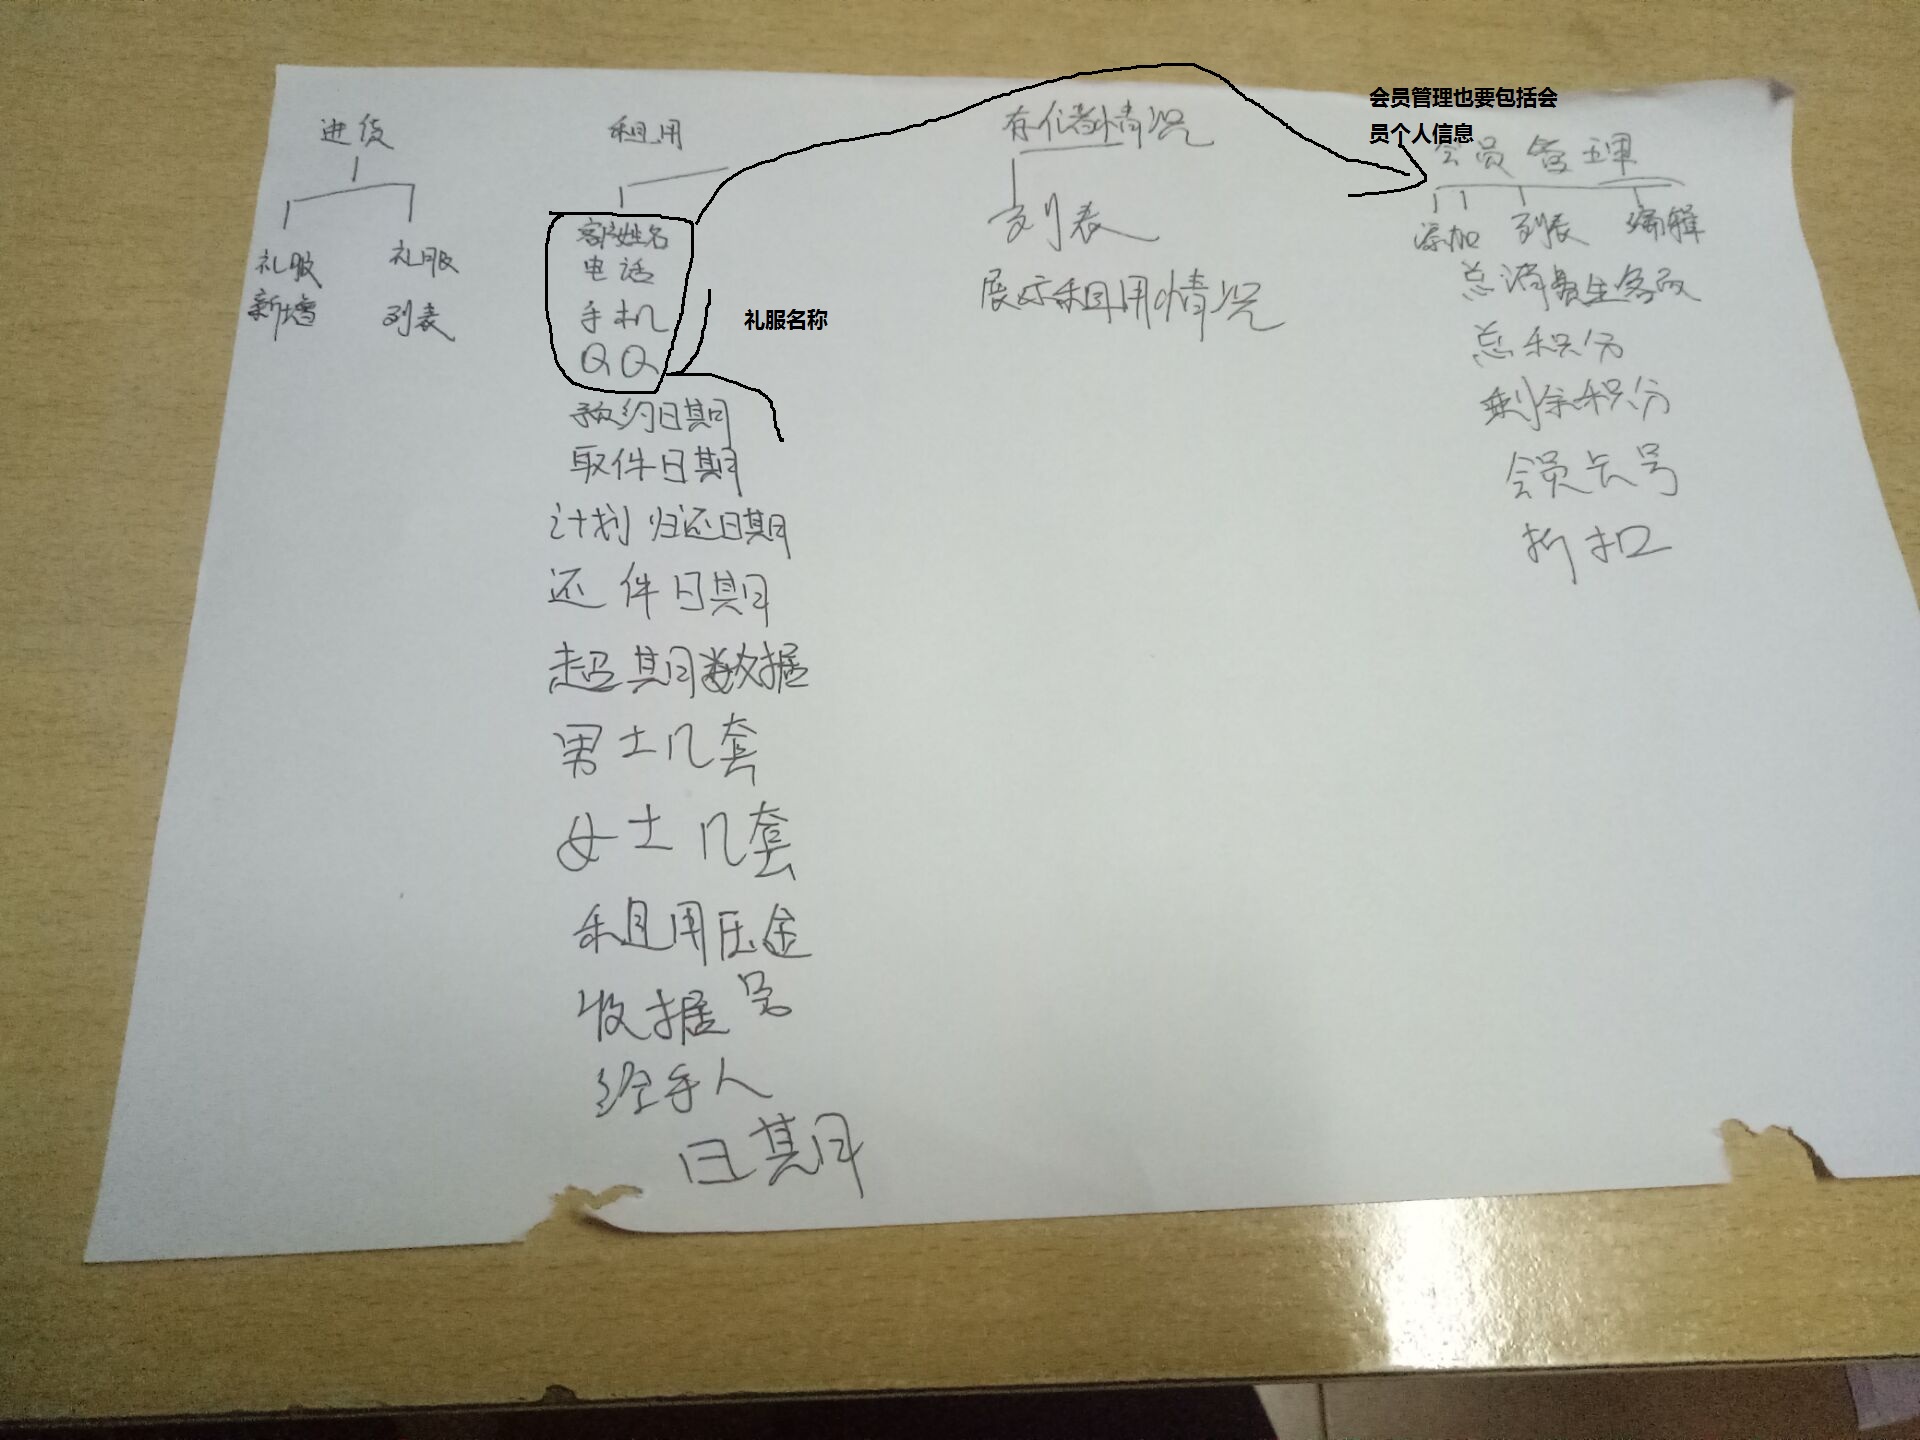 进货
礼服
新增
礼服
列表
租用
客户姓名
电话
手机
QQ
礼服名称
预约日期
取件日期
计划归还日期
还件日期
超期数据
男士几套
女士几套
租用压金
收据号
经手人
日期
存储情况
列表
展示租用情况
会员管理也要包括会
员个人信息
会员管理
添加 列表 编辑
总积分
剩余积分
会员卡号
折扣